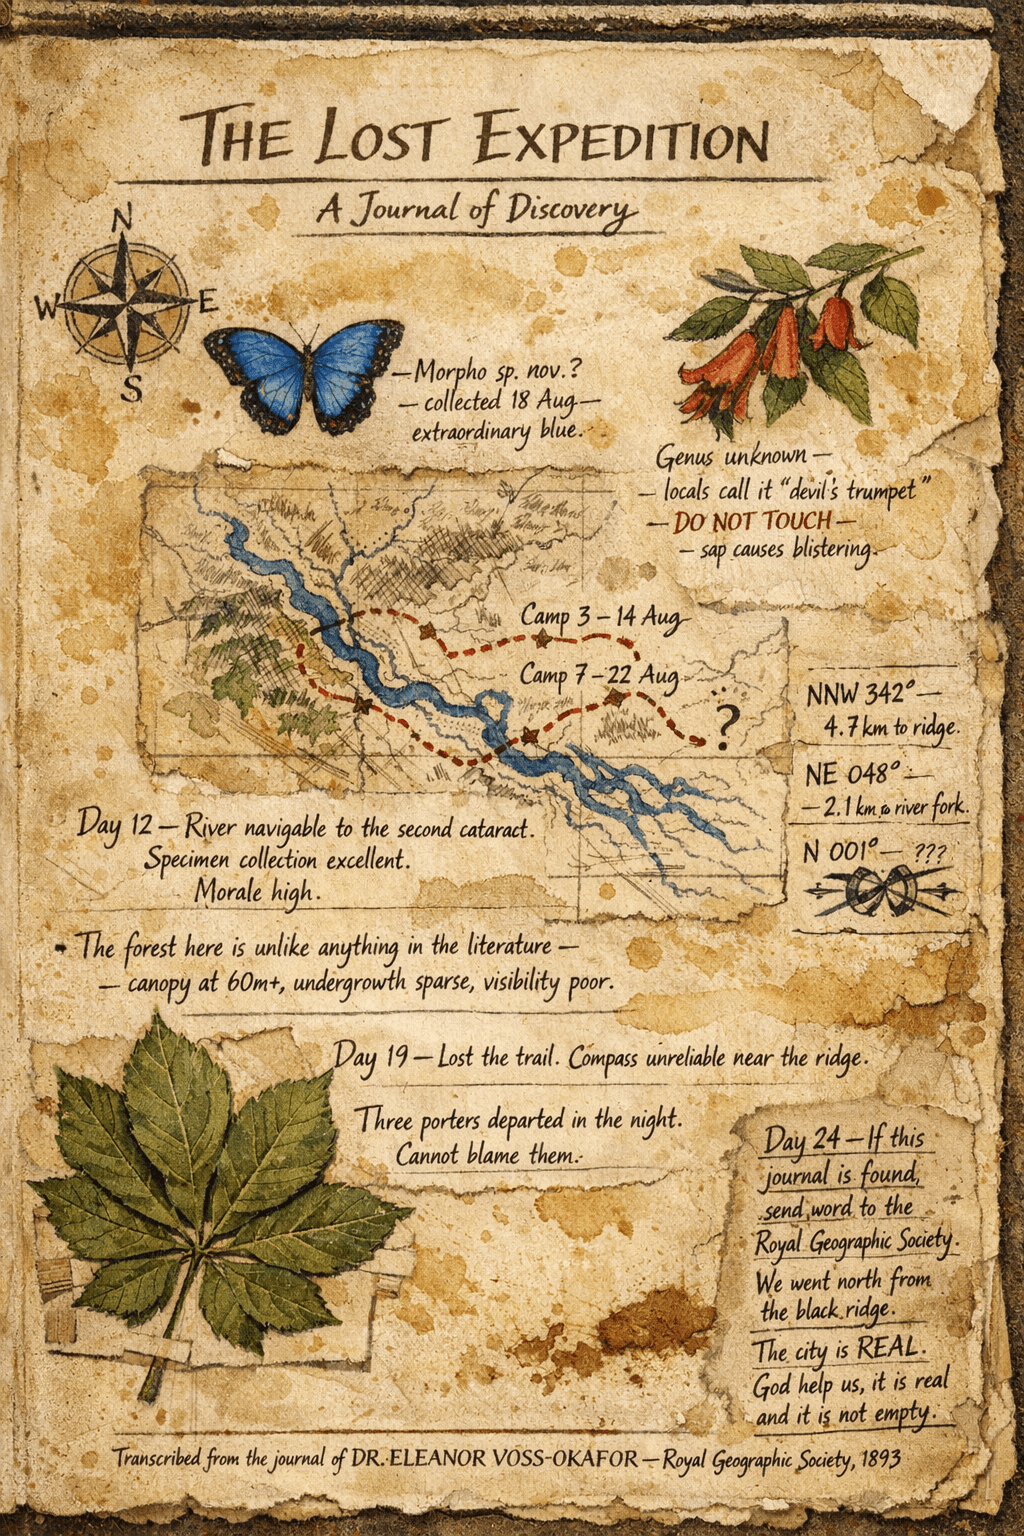 THE LOST EXPEDITION
A Journal of Discovery
N
W E
S
—Morpho sp. nov.?
— collected 18 Aug—
extraordinary blue.
Genus unknown —
— locals call it "devil's trumpet"
— DO NOT TOUCH —
— sap causes blistering.
Camp 3 – 14 Aug
Camp 7 – 22 Aug
?
NNW 342° —
4.7 km to ridge.
NE 048° —
— 2.1 km to river fork.
N 001° — ???
Day 12 — River navigable to the second cataract.
Specimen collection excellent.
Morale high.
- The forest here is unlike anything in the literature —
— canopy at 60m+, undergrowth sparse, visibility poor.
Day 19 — Lost the trail. Compass unreliable near the ridge.
Three porters departed in the night.
Cannot blame them.
Day 24 — If this
journal is found,
send word to the
Royal Geographic Society.
We went north from
the black ridge.
The city is REAL.
God help us, it is real
and it is not empty.
Transcribed from the journal of DR. ELEANOR VOSS-OKAFOR — Royal Geographic Society, 1893